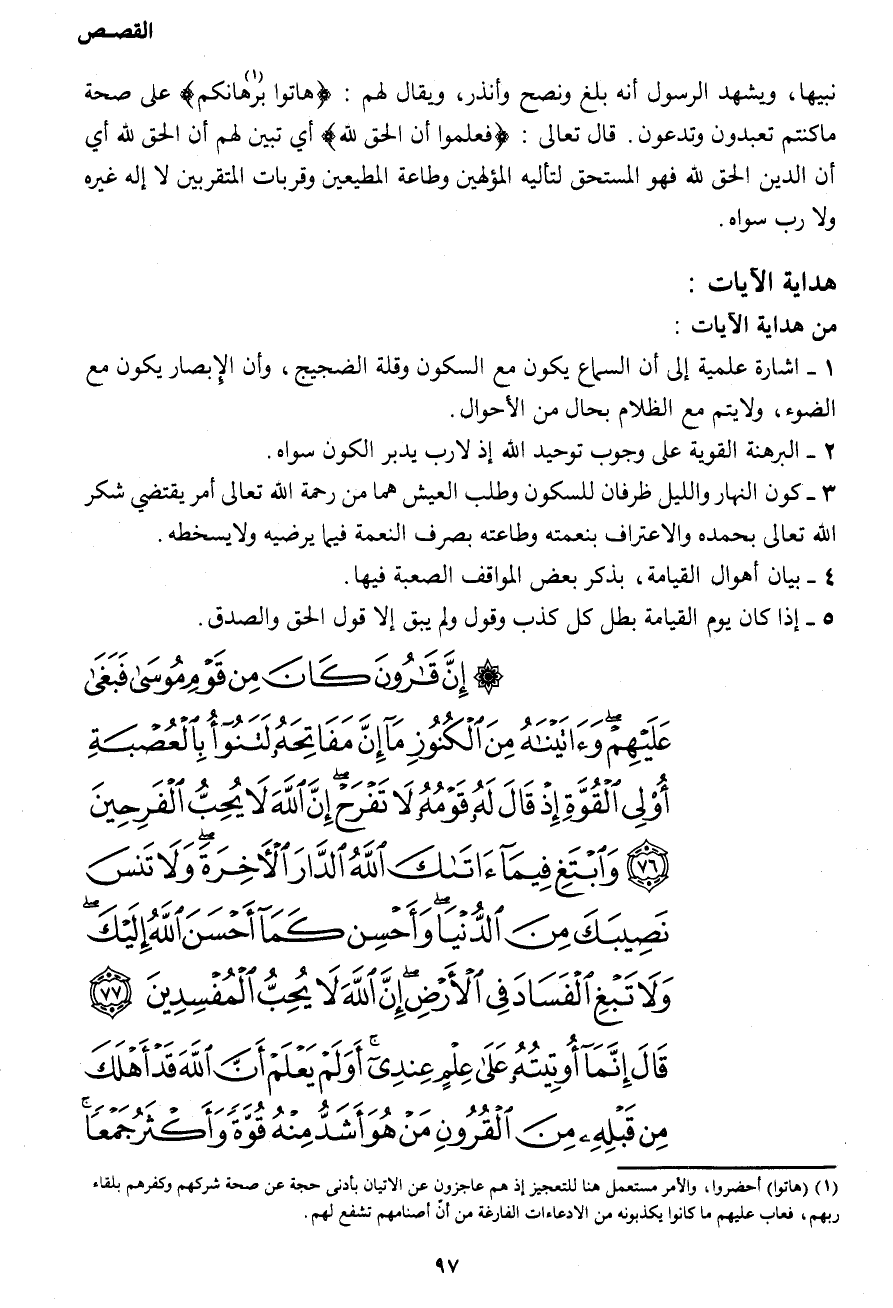 القصـص
نبيها، ويشهد الرسول أنه بلغ ونصح وأنذر، ويقال لهم : ﴿هاتوا برهانكم﴾(١) على صحة
ماكنتم تعبدون وتدعون. قال تعالى : ﴿فعلموا أن الحق لله﴾ أي تبين لهم أن الحق لله أي
أن الدين الحق لله فهو المستحق لتأليه المؤلهين وطاعة المطيعين وقربات المتقربين لا إله غيره
ولا رب سواه.
هداية الآيات :
من هداية الآيات :
١ ـ اشارة علمية إلى أن السماع يكون مع السكون وقلة الضجيج، وأن الإبصار يكون مع
الضوء، ولايتم مع الظلام بحال من الأحوال.
٢ ـ البرهنة القوية على وجوب توحيد الله إذ لارب يدبر الكون سواه.
٣ ـ كون النهار والليل ظرفان للسكون وطلب العيش هما من رحمة الله تعالى أمر يقتضي شكر
الله تعالى بحمده والاعتراف بنعمته وطاعته بصرف النعمة فيما يرضيه ولايسخطه.
٤ ـ بيان أهوال القيامة، بذكر بعض المواقف الصعبة فيها.
٥ ـ إذا كان يوم القيامة بطل كل كذب وقول ولم يبق إلا قول الحق والصدق.
۞ إِنَّ قَٰرُونَ كَانَ مِن قَوْمِ مُوسَىٰ فَبَغَىٰ
عَلَيْهِمْ ۖ وَءَاتَيْنَٰهُ مِنَ ٱلْكُنُوزِ مَآ إِنَّ مَفَاتِحَهُۥ لَتَنُوٓأُ بِٱلْعُصْبَةِ
أُو۟لِى ٱلْقُوَّةِ إِذْ قَالَ لَهُۥ قَوْمُهُۥ لَا تَفْرَحْ ۖ إِنَّ ٱللَّهَ لَا يُحِبُّ ٱلْفَرِحِينَ
﴿٧٦﴾ وَٱبْتَغِ فِيمَآ ءَاتَىٰكَ ٱللَّهُ ٱلدَّارَ ٱلْءَاخِرَةَ ۖ وَلَا تَنسَ
نَصِيبَكَ مِنَ ٱلدُّنْيَا ۖ وَأَحْسِن كَمَآ أَحْسَنَ ٱللَّهُ إِلَيْكَ ۖ
وَلَا تَبْغِ ٱلْفَسَادَ فِى ٱلْأَرْضِ ۖ إِنَّ ٱللَّهَ لَا يُحِبُّ ٱلْمُفْسِدِينَ ﴿٧٧﴾
قَالَ إِنَّمَآ أُوتِيتُهُۥ عَلَىٰ عِلْمٍ عِندِىٓ ۚ أَوَلَمْ يَعْلَمْ أَنَّ ٱللَّهَ قَدْ أَهْلَكَ
مِن قَبْلِهِۦ مِنَ ٱلْقُرُونِ مَنْ هُوَ أَشَدُّ مِنْهُ قُوَّةً وَأَكْثَرُ جَمْعًا ۚ
(١) (هاتوا) أحضروا، والأمر مستعمل هنا للتعجيز إذ هم عاجزون عن الاتيان بأدنى حجة عن صحة شركهم وكفرهم بلقاء
ربهم، فعاب عليهم ما كانوا يكذبونه من الادعاءات الفارغة من أنّ أصنامهم تشفع لهم.
٩٧